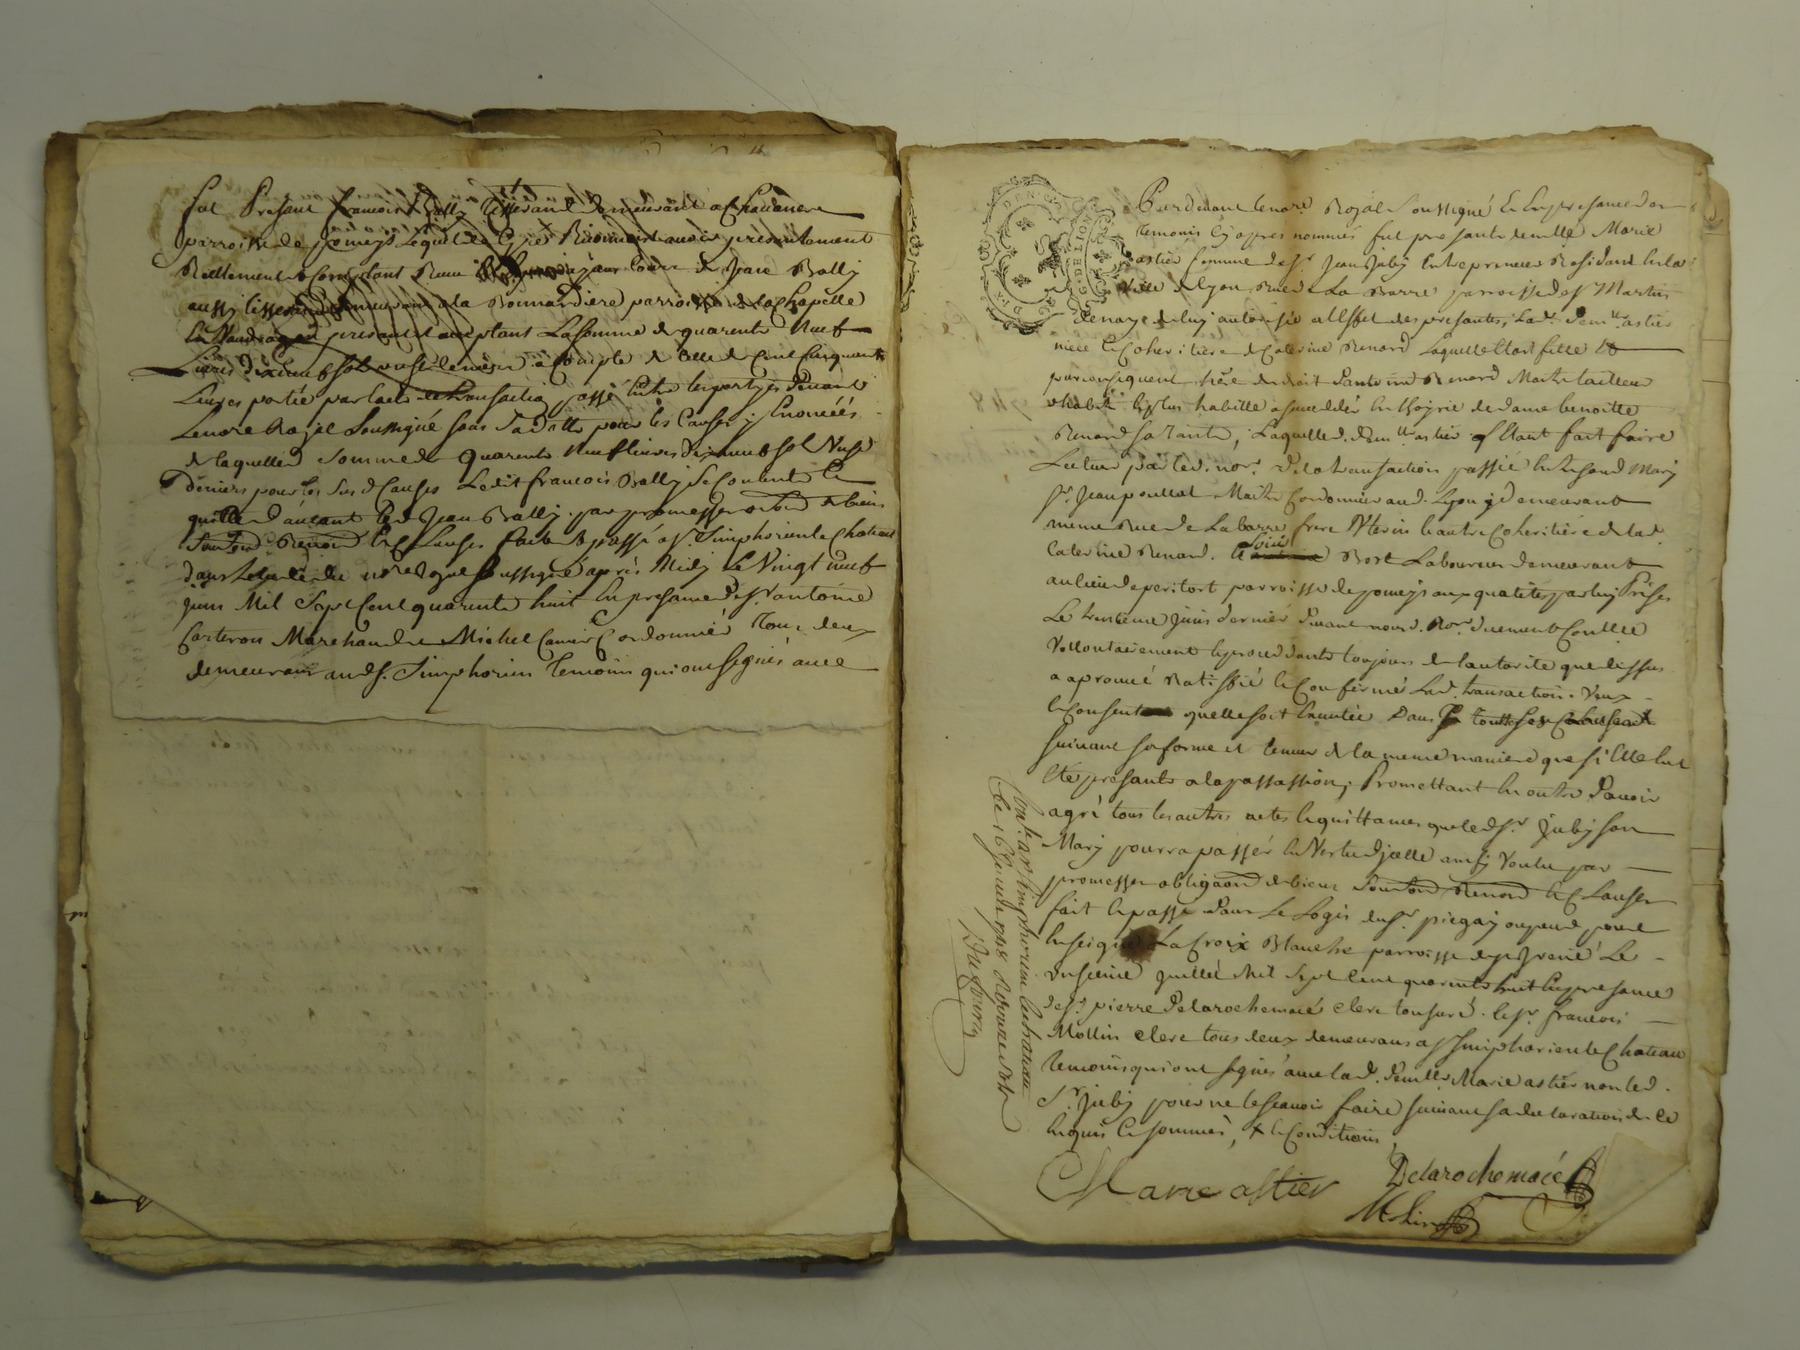 fut Present francois Bally tisserand demeurant a Chavanere
parroisse de pomeys Lequel de Gré Reconnoit avoir presentement
Reellement Comptant Receu de Jean Bally
aussy tisserand demeurant ala Bonnardiere parroisse de la Chapelle
present et aceptant La somme de quarante Neuf
Livres dixneuf sol a Compte de Celle de Cent Cinquante
Livres portée par lacte de transaction passé Entre les partyes devant
Le no.re Royal Soussigné sous Sa datte pour les Causes y Enoncéés
de laquelle somme de quarante Neuf livres dixneuf sol Neuf
deniers pour les Susd Causes Ledit francois Bally Se Contente Et
quitte led Jean Bally par promesse de biens
Renon. Et Clauses fait & passé a St Simphorien le Chateau
dans Letude du no.re Royal Soussigné aprés Midy Le Vingt neuf
juin Mil Sept Cent quarante huit En presance de Sr antoine
Carteron Marchand & Michel Cordonnier tous deux
demeurant aud St. Simphorien temoins qui ont signés avec
Pardevant le no.re Royal Soussigné Et En presance des
temoins Cy apres nommés fut presante demlle Marie
astier femme de Sr. Jean Juby Entrepreneur Residant En la
Ville de Lyon Rue de La Barre parroisse de St Martin
denaye de luy autorisée a lEffet des presantes, Lad. demlle astier
niéce Et Coheritiere de Caterine Renard Laquelle Etoit fille Et
par consequent hére de droit dantoine Renard Maitre tailleur
dhabit de dame benoitte
Renard sa tante, Laquelle d. demlle astier aÿant fait faire
Lecture par led. nore. de la transaction passée Entre sond Mary
Sr. Jean poullat Maitre Cordonnier aud. Lyon y demeurant
meme Rue de La barre frere Vterin Et autre Coheritiere de lad.
Caterine Renard. Et Bort Laboureur demeurant
au lieu de peritort parroisse de pomeys aux qualités par luy Prises
Le trentieme juin dernier devant nousd. Nore. duement Contllé
Vollontairement Et procedante toujours de lautorité que dessus
a aprouvé Ratiffié Et Confirmé Lad. transaction. Veux
Et Consent quelle soit Exécutée Dans toutte ses Clauses
suivant sa forme et teneur de la meme maniere que si Elle Eut
Eté presante a la passassion; Promettant En outre davoir
agré tous les autres actes Et quittances que led Sr. Juby son
Mary pourra passér En Vertu djcelle ainsy Voulu par
promesse obligaon de biens Renon Et Clauses
fait Et passé dans Le Logis du Sr. piegay ou pend pour
Enseigne La Croix Blanche parroisse de St Jrené Le
juillet Mil Sept Cent quarante huit En presance
de Sr. pierre Delarochemacé Clerc tonsuré. Et Sr. francois
Mollin Clerc tous deux demeurans a St Simphorien le Chateau
temoins qui ont signés avec lad. demlle Marie astier non led.
Sr. Juby pour ne le scavoir faire suivant sa declaration de Ce
Enquis Et sommés, & Et Conditions
Marie astier
Delarochemacé
Molin
Contlé. a St Simphorien le chateau